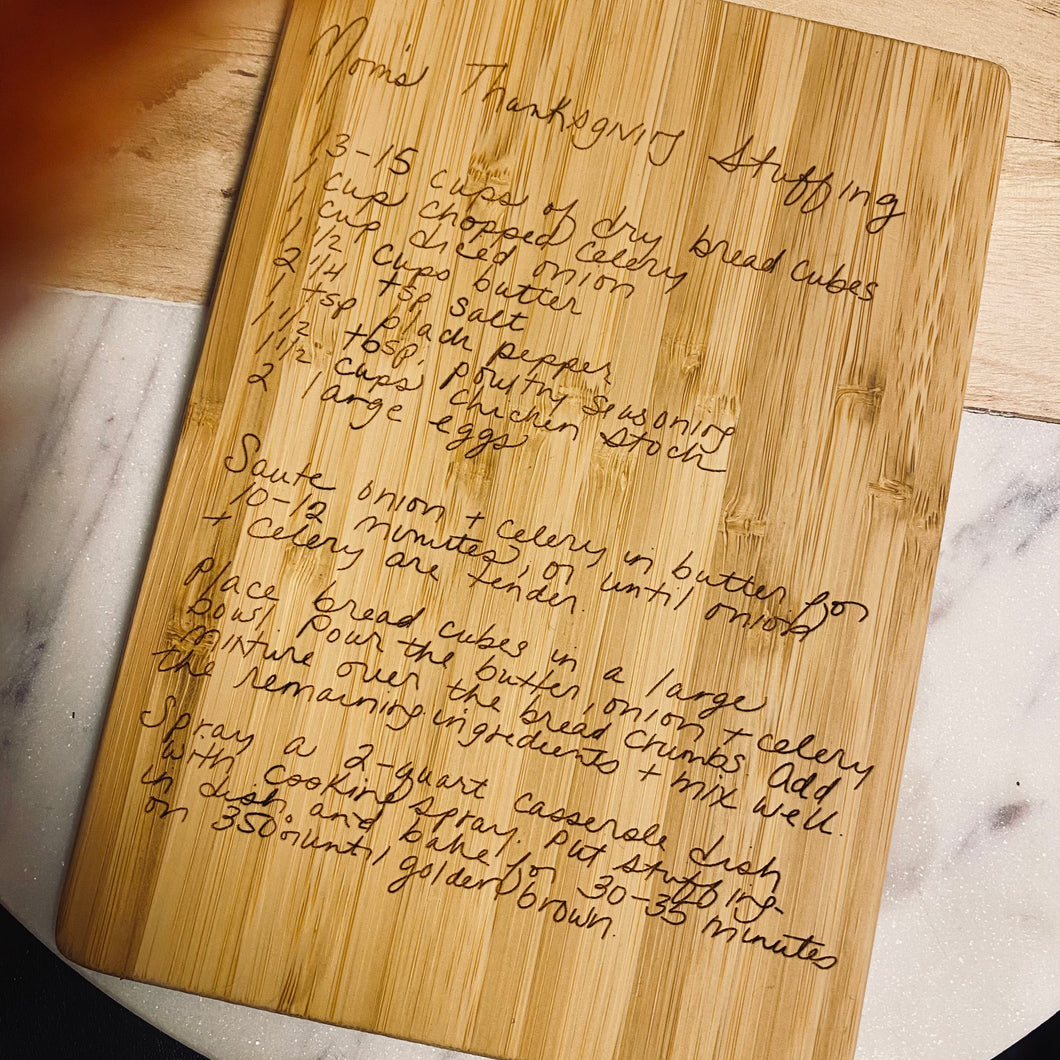 Mom's Thanksgiving Stuffing
13-15 cups of dry bread cubes
1 cup chopped celery
1 cup diced onion
1 1/2 cups butter
2 1/4 tsp salt
1 tsp black pepper
1 1/2 tbsp. poultry seasoning
1 1/2 cups chicken stock
2 large eggs
Saute onion + celery in butter for
10-12 minutes, or until onions
+ celery are tender.
Place bread cubes in a large
bowl. Pour the butter, onion + celery
mixture over the bread crumbs. Add
the remaining ingredients + mix well.
Spray a 2-quart casserole dish
with cooking spray. Put stuffing
in dish and bake for 30-35 minutes
on 350 or until golden brown.